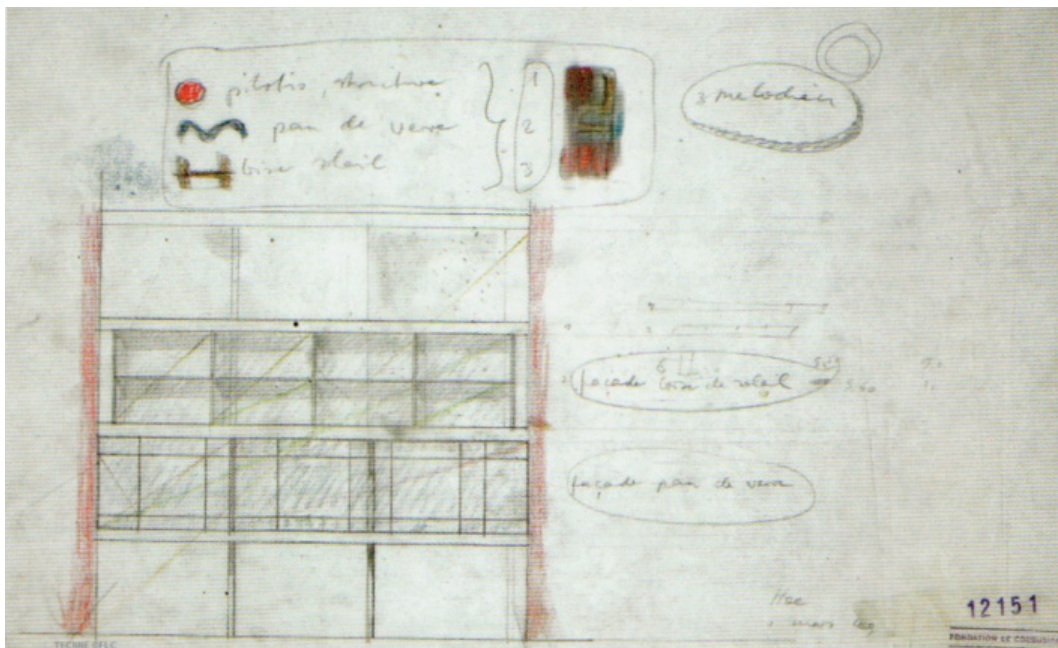 pilotis, structure
pan de verre
brise soleil
1
2
3
3 melodies
façade brise de soleil
façade pan de verre
mars
12151
FONDATION LE CORBUSIER